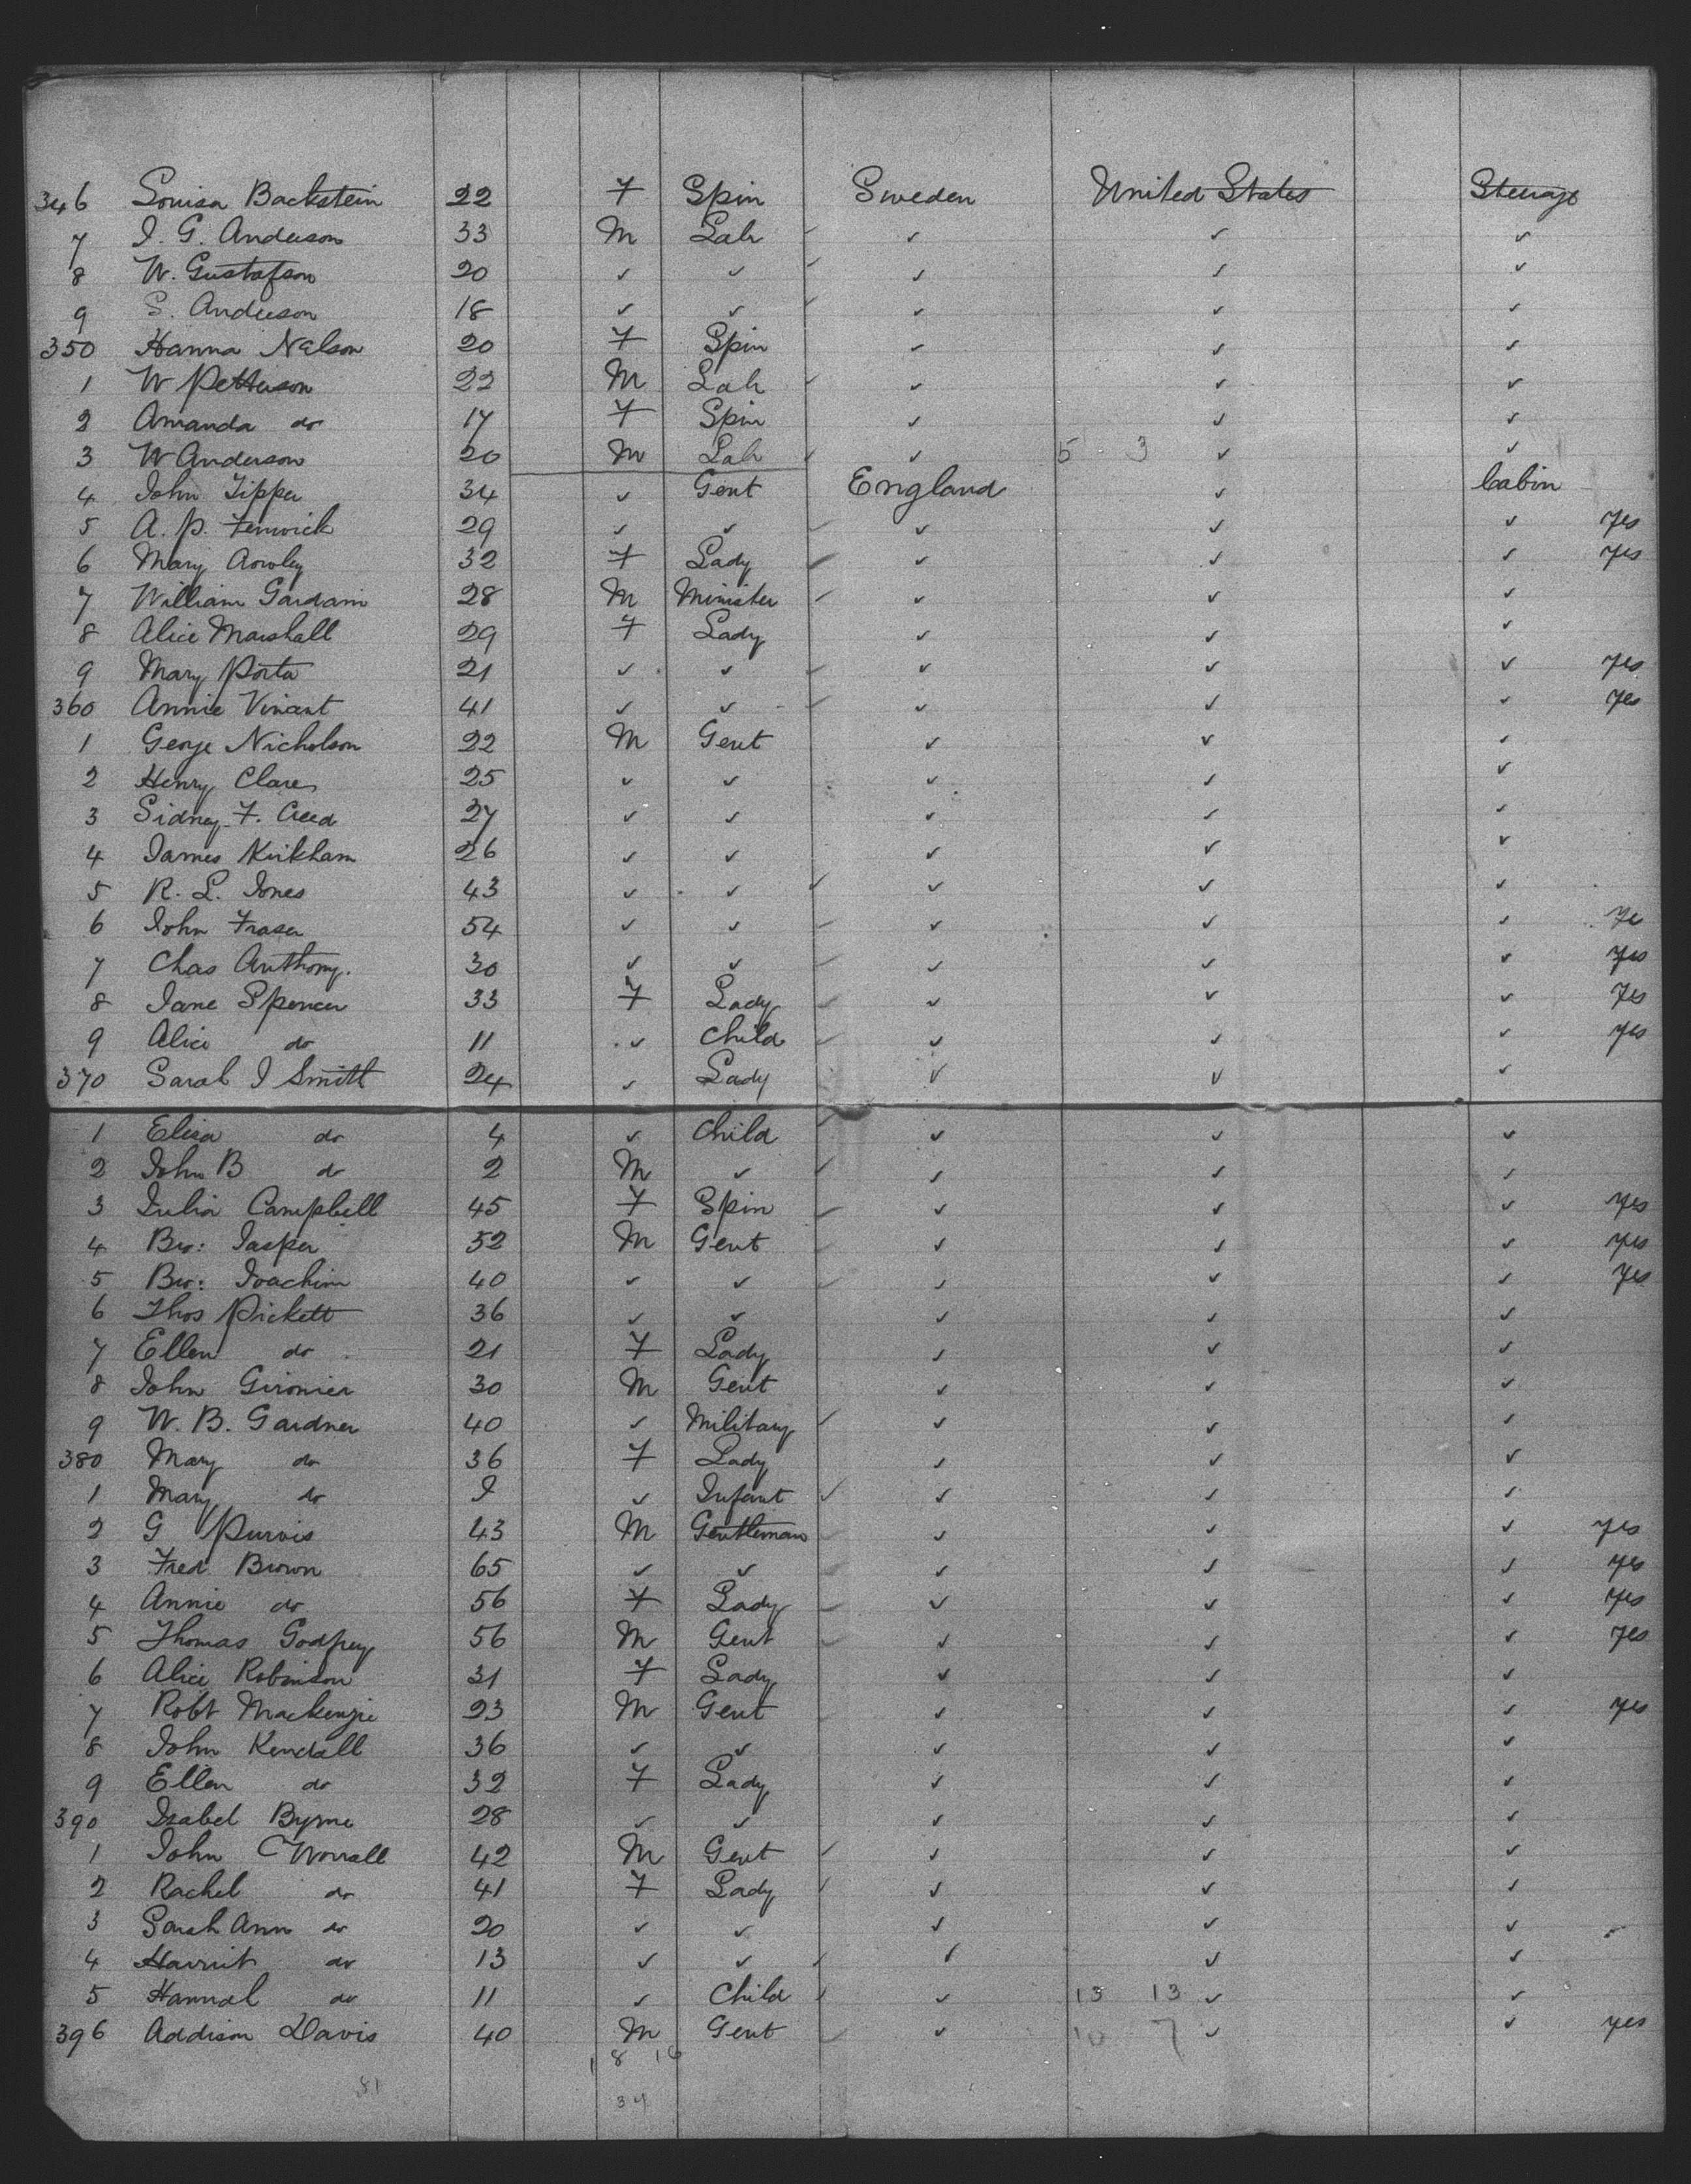 346 Louisa Backstein 22 F Spin Sweden United States Steerage
7 J. G. Anderson 33 M Lab ✓ ✓ ✓
8 W. Gustafson 20 ✓ ✓ ✓ ✓ ✓
9 S. Anderson 18 ✓ ✓ ✓ ✓ ✓
350 Hanna Nelson 20 F Spin ✓ ✓ ✓
1 W Petterson 22 M Lab ✓ ✓ ✓
2 Amanda do 17 F Spin ✓ ✓ ✓
3 W Anderson 20 M Lab ✓ 5 3 ✓ ✓
4 John Tipper 34 ✓ Gent England ✓ Cabin
5 A. P. Fenwick 29 ✓ ✓ ✓ ✓ ✓ yes
6 Mary 32 F Lady ✓ ✓ ✓ yes
7 William Gardam 28 M Minister ✓ ✓ ✓
8 Alice Marshall 29 F Lady ✓ ✓ ✓
9 Mary Porter 21 ✓ ✓ ✓ ✓ ✓ yes
360 Annie Vincent 41 ✓ ✓ ✓ ✓ ✓ yes
1 George Nicholson 22 M Gent ✓ ✓ ✓
2 Henry Clare 25 ✓ ✓ ✓ ✓ ✓
3 Sidney F. Creed 27 ✓ ✓ ✓ ✓ ✓
4 James Kirkham 26 ✓ ✓ ✓ ✓ ✓
5 R. L. Jones 43 ✓ ✓ ✓ ✓ ✓
6 John Fraser 54 ✓ ✓ ✓ ✓ ✓ ye
7 Chas Anthony. 30 ✓ ✓ ✓ ✓ ✓ yes
8 Jane Spencer 33 F Lady ✓ ✓ ✓ yes
9 Alice do 11 ✓ Child ✓ ✓ ✓ yes
370 Sarah J Smith 24 ✓ Lady ✓ ✓ ✓
1 Eliza do 4 ✓ Child ✓ ✓ ✓
2 John B do 2 M ✓ ✓ ✓ ✓
3 Julia Campbell 45 F Spin ✓ ✓ ✓ yes
4 Bro: Jasper 52 M Gent ✓ ✓ ✓ yes
5 Bro: Joachim 40 ✓ ✓ ✓ ✓ ✓ yes
6 Thos Pickett 36 ✓ ✓ ✓ ✓ ✓
7 Ellen do 21 F Lady ✓ ✓ ✓
8 John Gironier 30 M Gent ✓ ✓ ✓
9 W. B. Gardner 40 ✓ Military ✓ ✓ ✓
380 Mary do 36 F Lady ✓ ✓ ✓
1 Mary do I ✓ Infant ✓ ✓ ✓
2 G Purvis 43 M Gentleman ✓ ✓ ✓ yes
3 Fred Brown 65 ✓ ✓ ✓ ✓ ✓ yes
4 Annie do 56 F Lady ✓ ✓ ✓ yes
5 Thomas Godfrey 56 M Gent ✓ ✓ ✓ yes
6 Alice Robinson 31 F Lady ✓ ✓ ✓
7 Robt Mackenzie 23 M Gent ✓ ✓ ✓ yes
8 John Kendall 36 ✓ ✓ ✓ ✓ ✓
9 Ellen do 32 F Lady ✓ ✓ ✓
390 Isabel Byrne 28 ✓ ✓ ✓ ✓ ✓
1 John C Worrall 42 M Gent ✓ ✓ ✓
2 Rachel do 41 F Lady ✓ ✓ ✓
3 Sarah Ann do 20 ✓ ✓ ✓ ✓ ✓
4 Harriet do 13 ✓ ✓ ✓ ✓ ✓
5 Hannah do 11 ✓ Child ✓ 13 13 ✓ ✓
396 Addison Davis 40 M Gent ✓ 10 7 ✓ ✓ yes
18 16
81
34